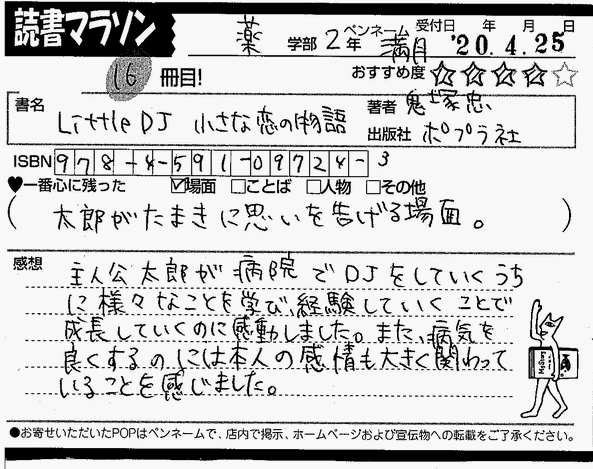 読書マラソン
薬 学部 2年 ペンネーム 満月 受付日 年 月 日
'20.4.25
16 冊目!
おすすめ度 ★★★★☆
書名 Little DJ 小さな恋の物語
著者 鬼塚忠
出版社 ポプラ社
ISBN 978-4-591-09724-3
♥一番心に残った ☑場面 □ことば □人物 □その他
(太郎がたまきに思いを告げる場面。)
感想
主人公太郎が病院でDJをしていくうち
に様々なことを学び、経験していくことで
成長していくのに感動しました。また、病気を
良くするのには本人の感情も大きく関わって
いることを感じました。
●お寄せいただいたPOPはペンネームで、店内で掲示、ホームページおよび宣伝物への転載をご了承ください。